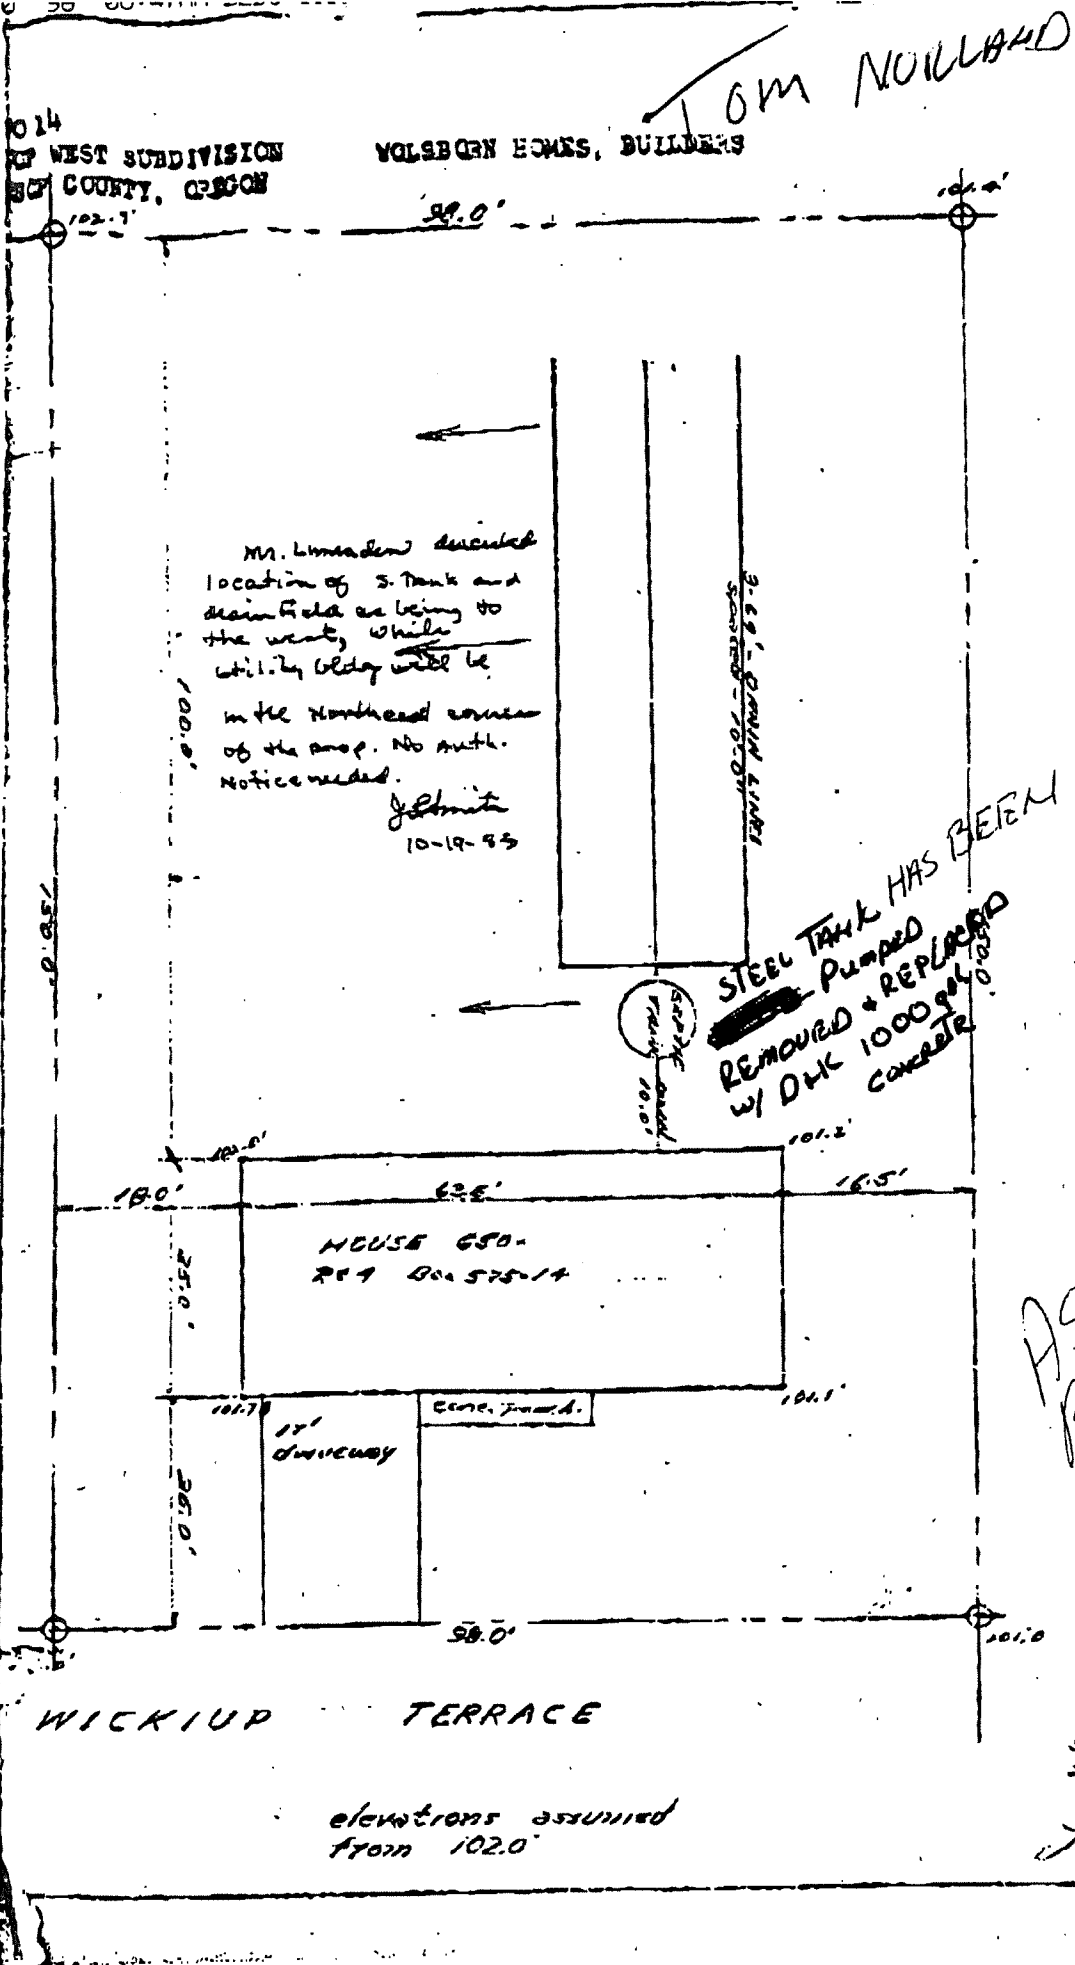 TOM NORLAND
WEST SUBDIVISION
COUNTY, OREGON
HOMES, BUILDERS
102.9'
99.0'
101.4'
Mr. described
location of S. Tank and
drainfield as being to
the west, while
utility bldg will be
in the Northeast corner
of the prop. No Auth.
Notice needed.
10-19-83
3-69'- DRAIN LINES
SPACED - 10.0'
100.0'
150.0'
150.0'
STEEL TANK HAS BEEN
PUMPED
REMOVED & REPLACED
W/ D&K 1000 gal
CONCRETE
SEPTIC
TANK
10.0'
101.2'
18.0'
62.5'
16.5'
HOUSE 650-
Rt 4 Box 575-14
25.0'
101.7
101.1'
conc.
driveway
26.0'
98.0'
101.0
WICKIUP TERRACE
elevations assumed
from 102.0'